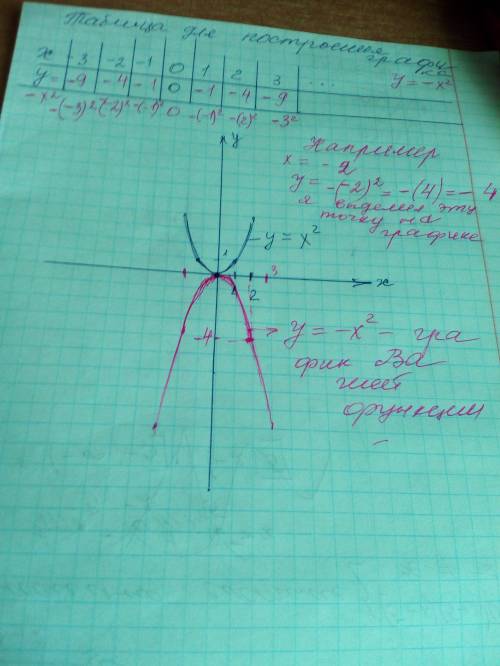 Таблица для построения графи-
ка
x -3 -2 -1 0 1 2 3 ... y = -x²
y= -9 -4 -1 0 -1 -4 -9
-x² -(-3)² -(-2)² -(-1)² 0 -(-1)² -(2)² -3²
Например
x = -2
y = -(-2)² = -(4) = -4
я выделил эту
точку на
графике
y
y = x²
1
3
x
1 2
-4
y = -x² - гра
фик Ва
шей
функции